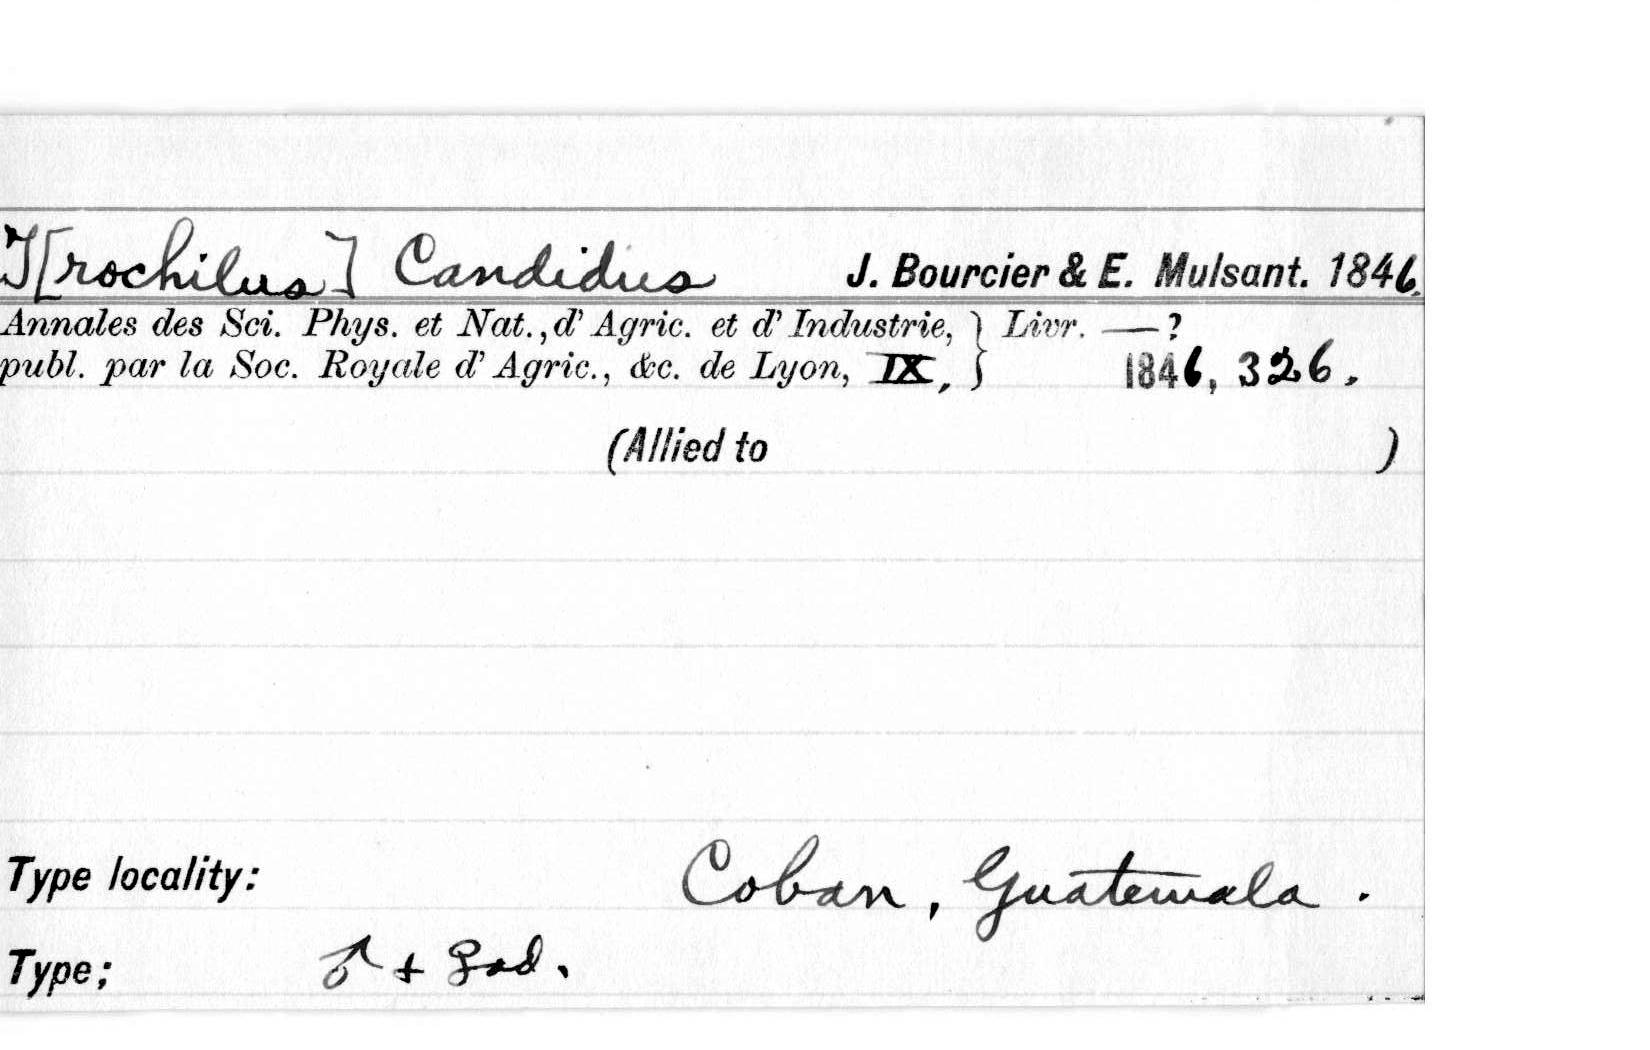 T[rochilus] Candidus J. Bourcier & E. Mulsant. 1846.
Annales des Sci. Phys. et Nat., d' Agric. et d' Industrie, } Livr. —?
publ. par la Soc. Royale d' Agric., &c. de Lyon, IX, } 1846, 326.
(Allied to )
Type locality: Coban, Guatemala.
Type; ♂ + ♀ ad.